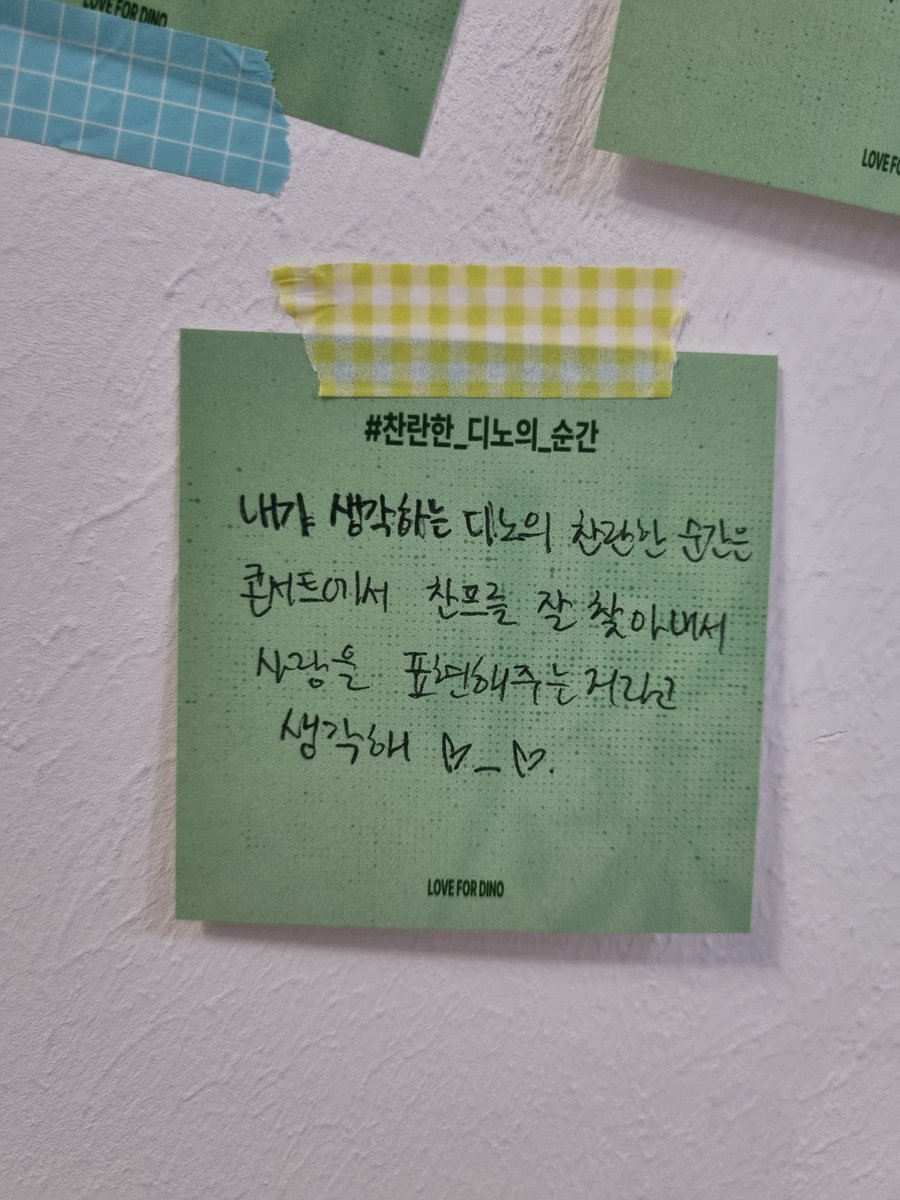 LOVE FOR DINO
LOVE FO
#찬란한_디노의_순간
내가 생각하는 디노의 찬란한 순간은
콘서트에서 찬프를 잘 찾아내서
사랑을 표현해주는 저라고
생각해 ♡_♡.
LOVE FOR DINO